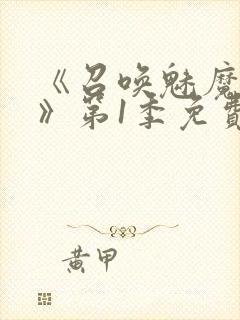 《召唤魅魔
》第1季免費
黄甲